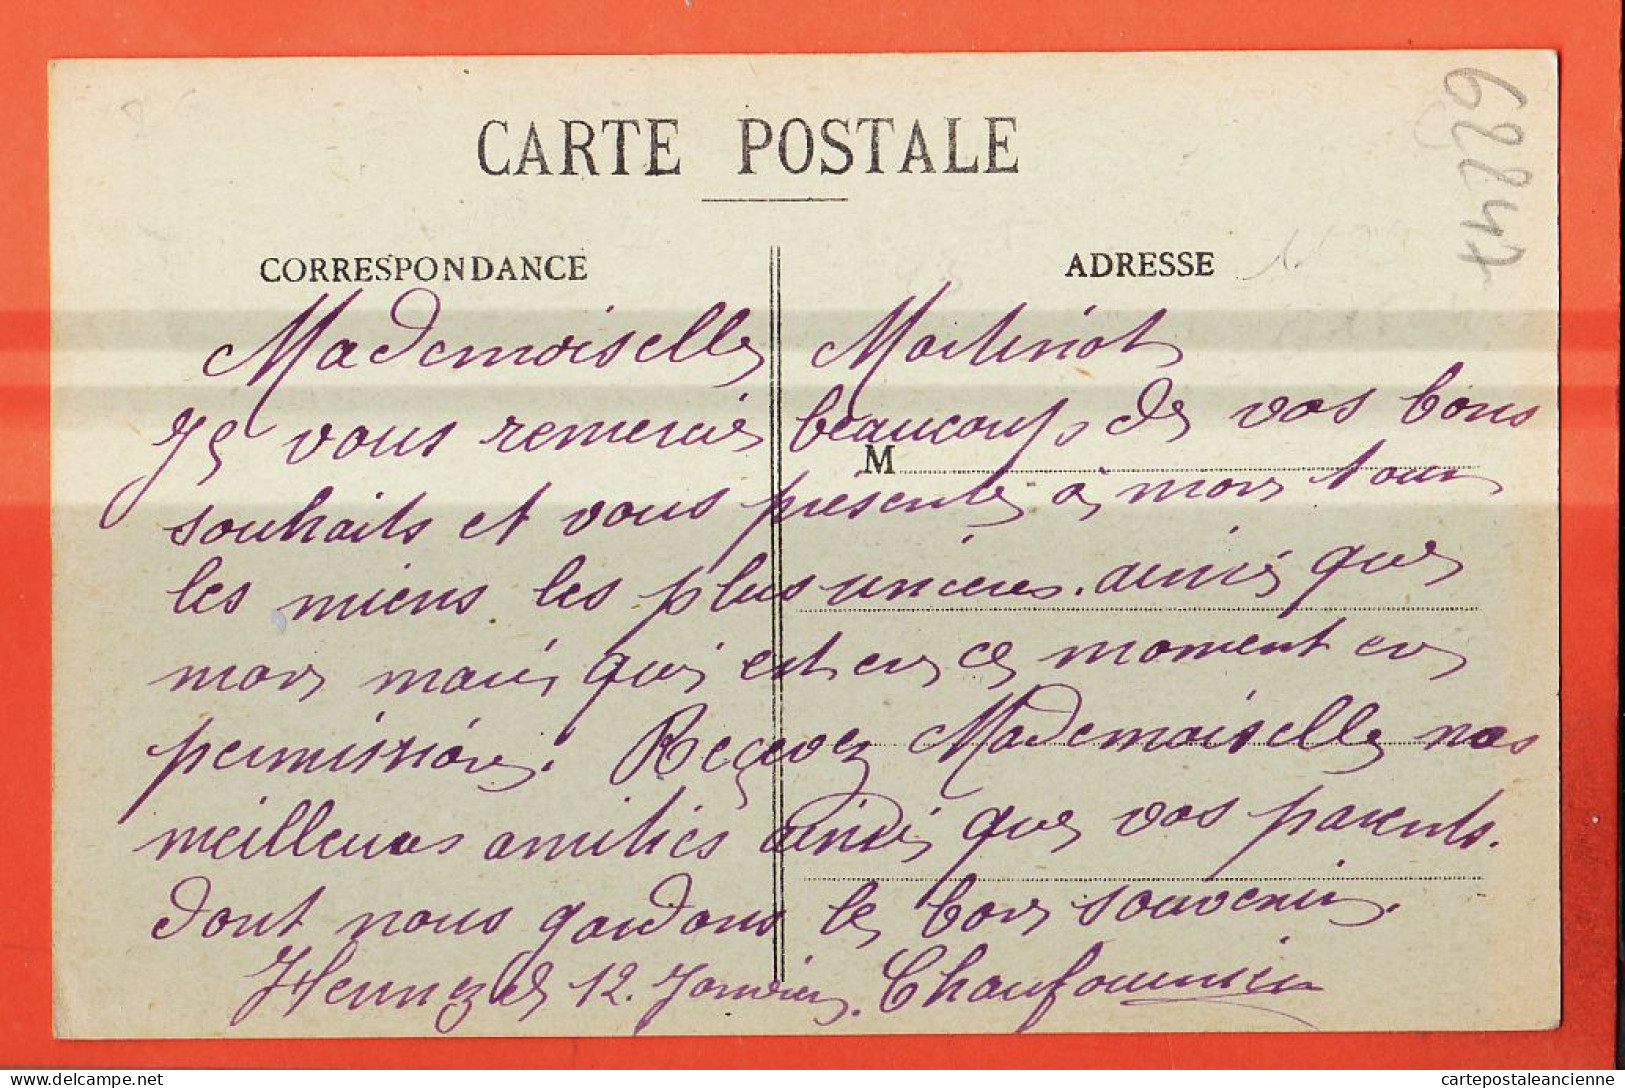 62247
CARTE POSTALE
CORRESPONDANCE
ADRESSE
Mademoiselle Martinot
Je vous remercie beaucoup, de vos bons
M
souhaits et vous présente à mon tour
les miens les plus sincères. ainsi que
mon mari qui est en ce moment en
permission. Recevez Mademoiselle nos
meilleures amitiés ainsi que vos parents.
dont nous gardons le bon souvenir.
12. Janvier. Chaufournier
delcampe.net
cartepostaleancienne